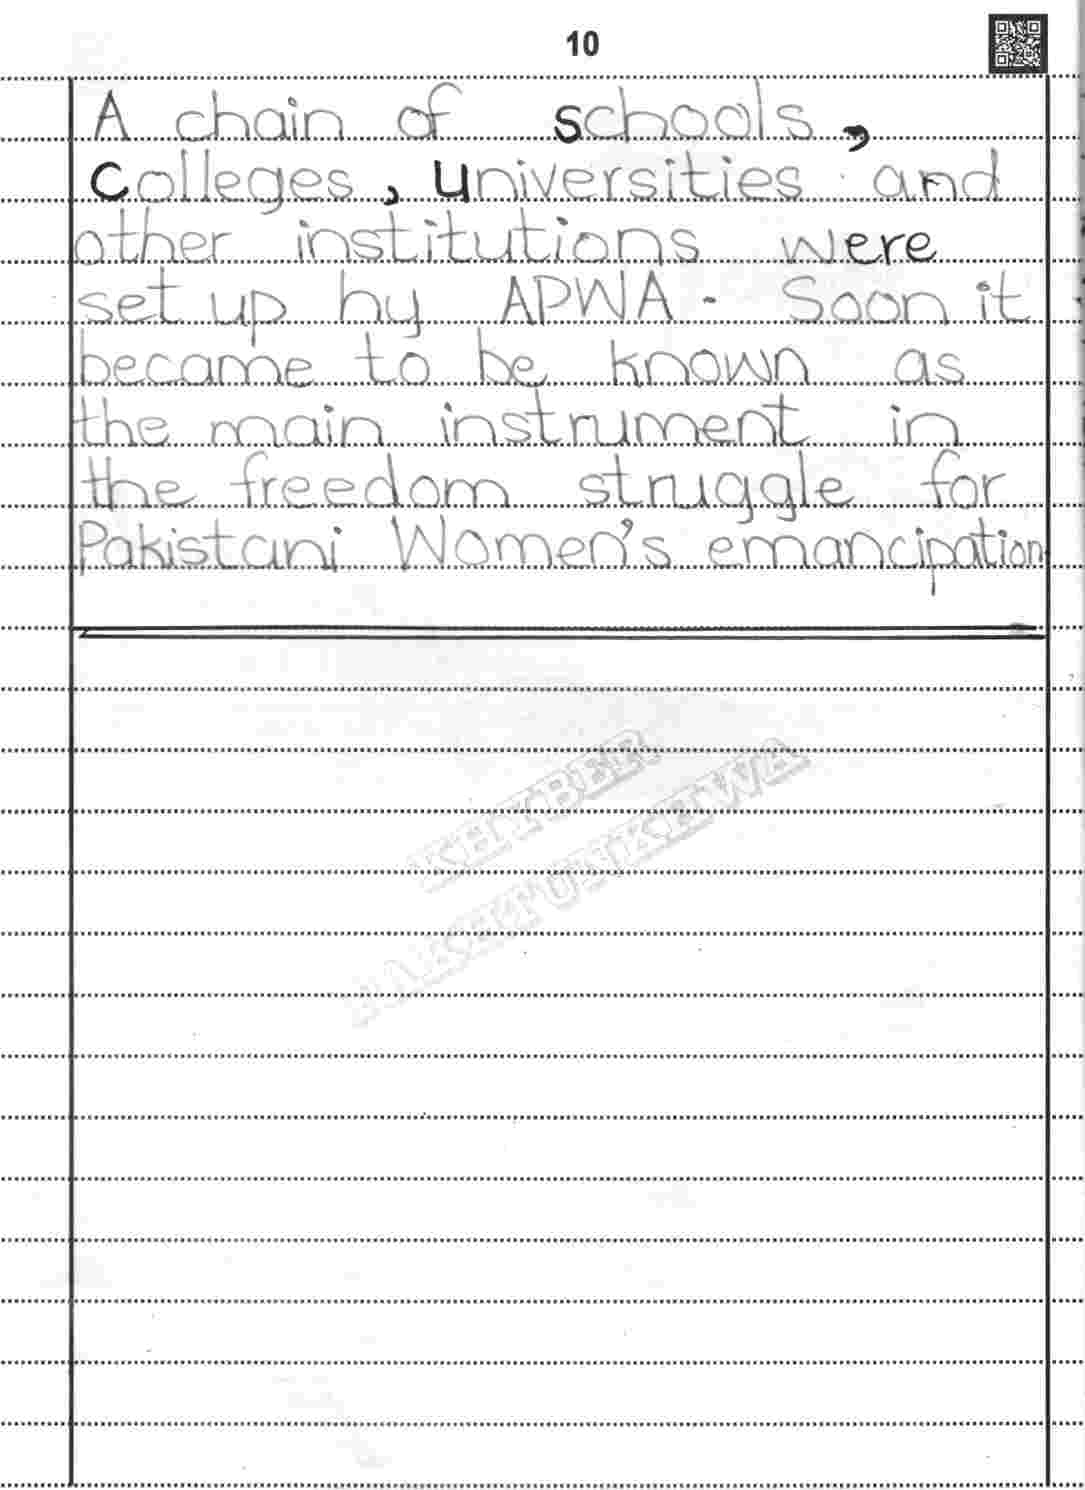 10
A chain of schools,
Colleges, universities and
other institutions were
set up by APWA. Soon it
became to be known as
the main instrument in
the freedom struggle for
Pakistani Women's emancipation
KHYBER
PAKHTUNKHWA